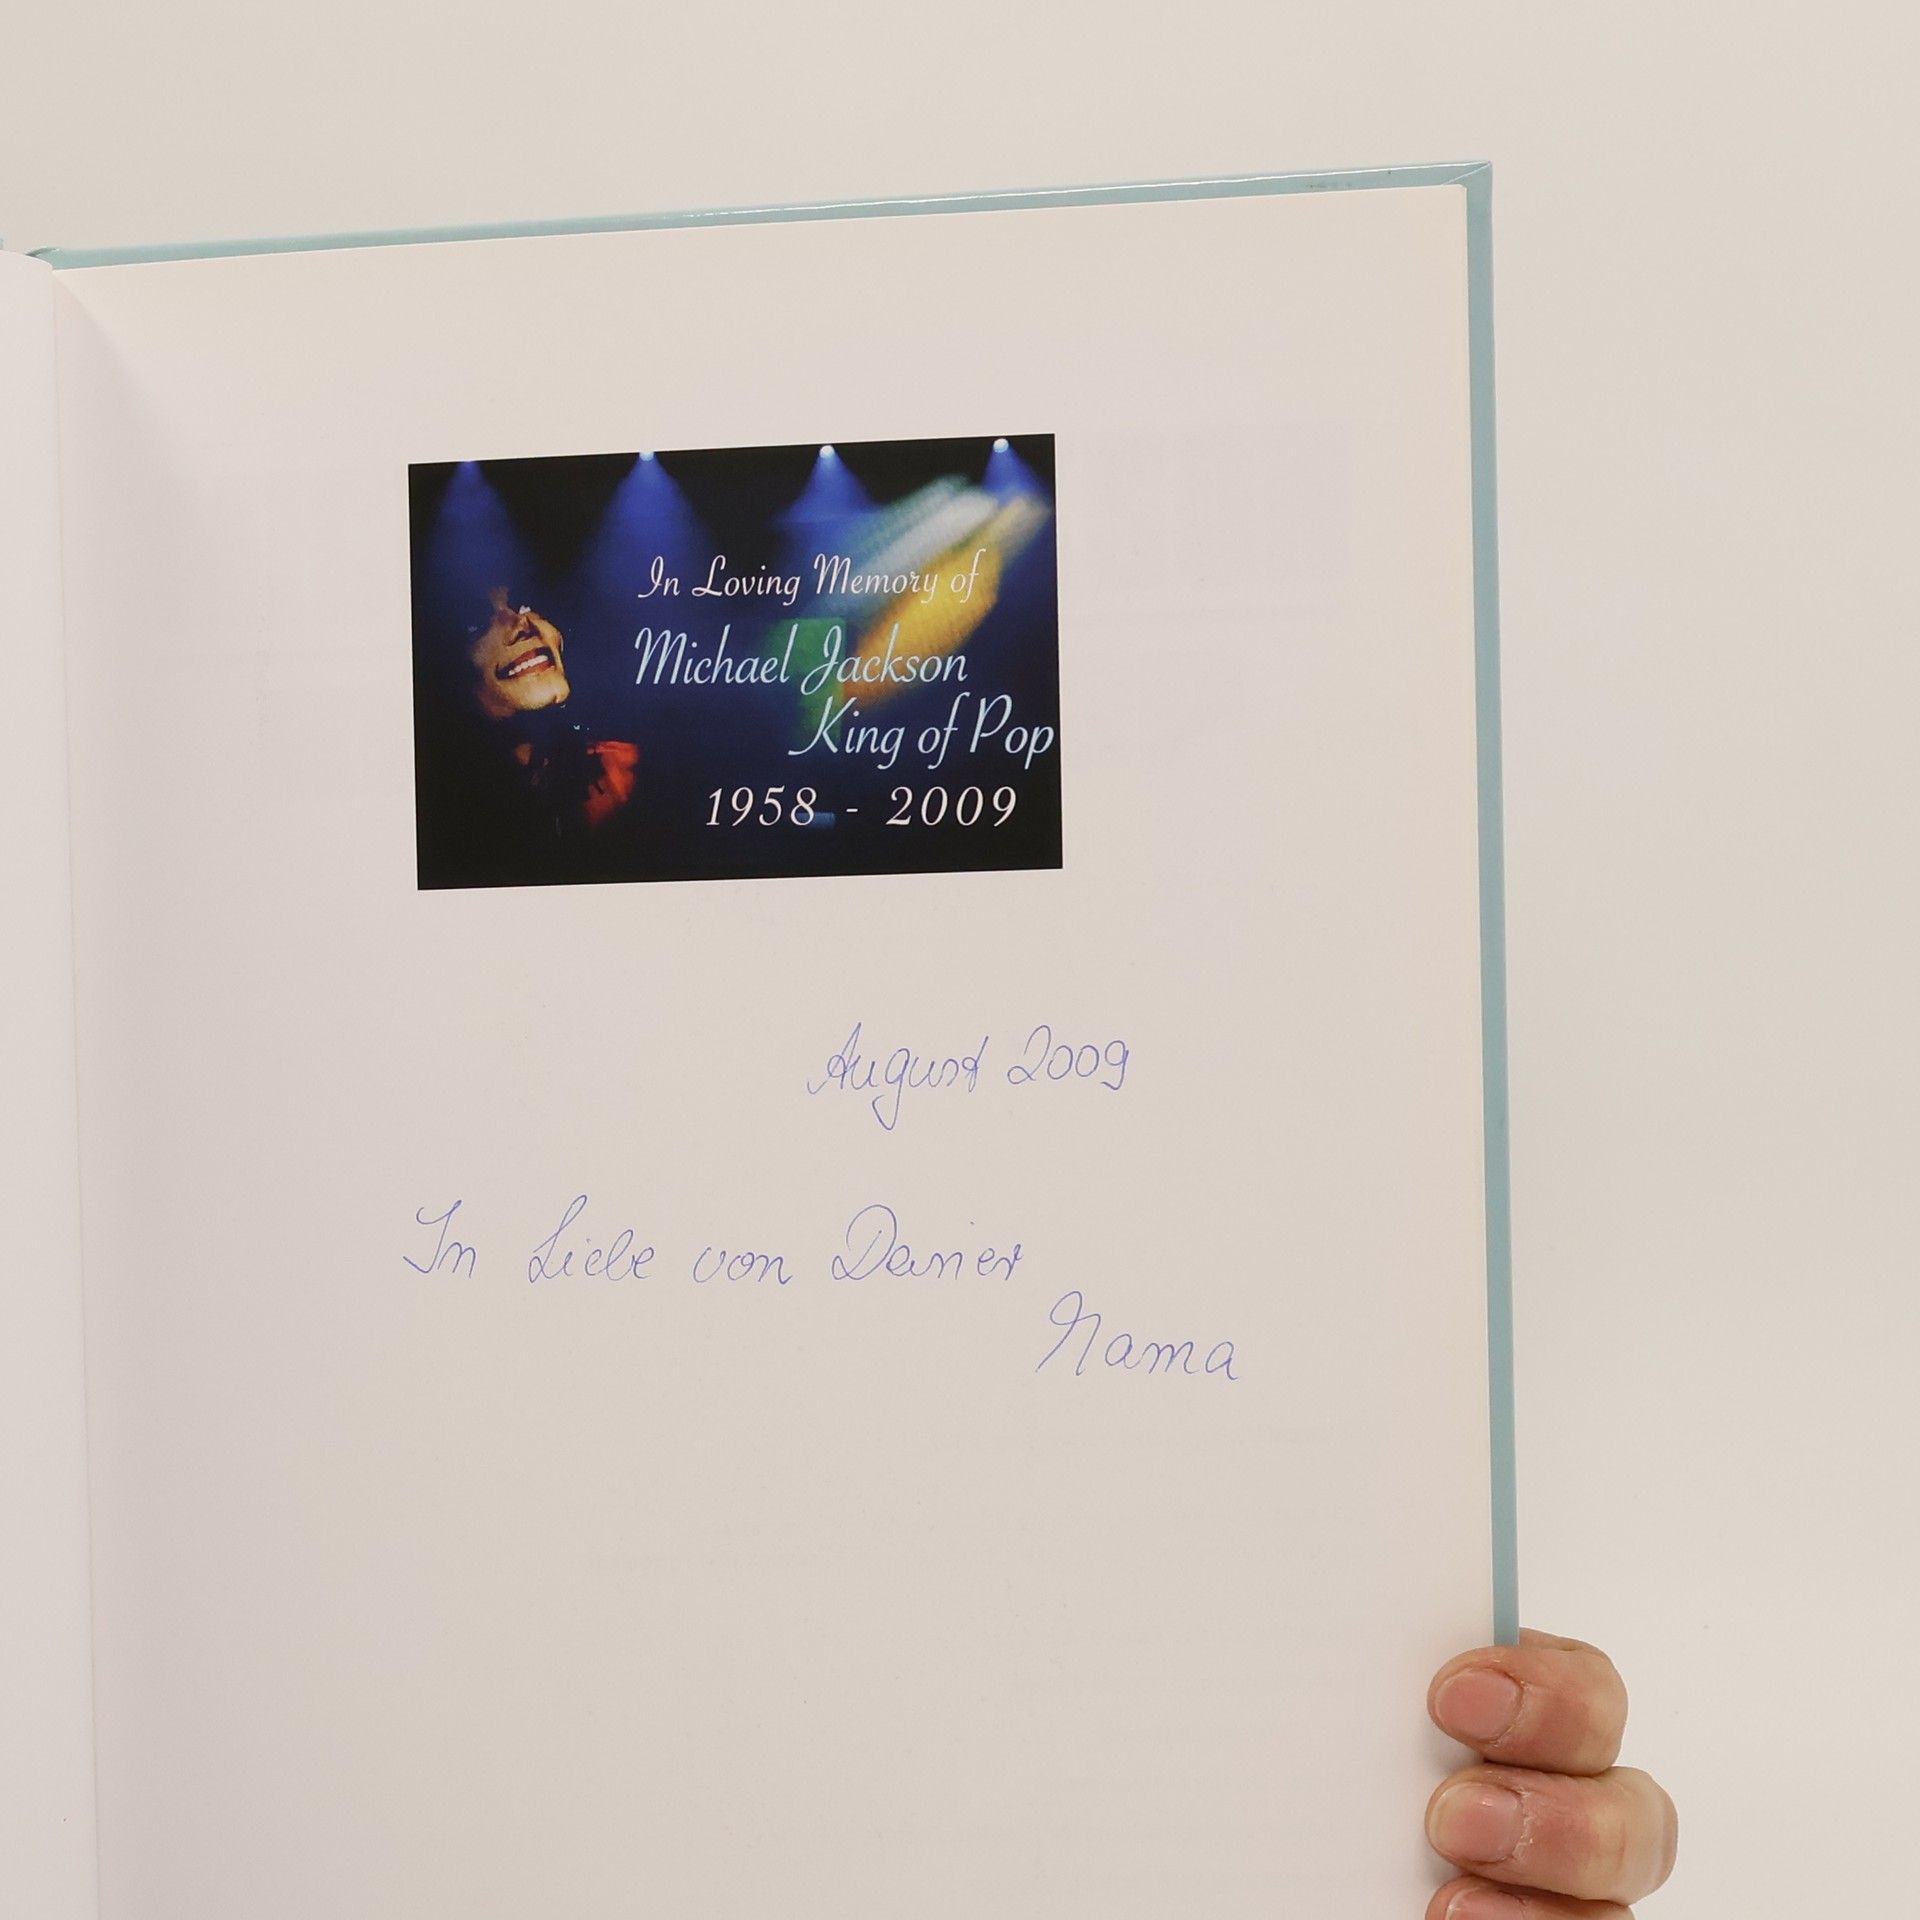 In Loving Memory of
Michael Jackson
King of Pop
1958 - 2009
August 2009
In Liebe von Deiner
Mama